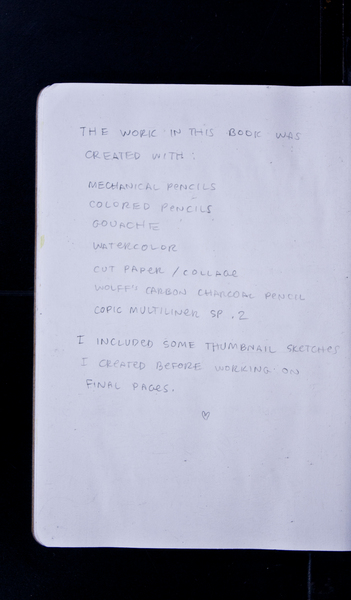 THE WORK IN THIS BOOK WAS
CREATED WITH:
MECHANICAL PENCILS
COLORED PENCILS
GOUACHE
WATERCOLOR
CUT PAPER / COLLAGE
WOLFF'S CARBON CHARCOAL PENCIL
COPIC MULTILINER SP .2
I INCLUDED SOME THUMBNAIL SKETCHES
I CREATED BEFORE WORKING ON
FINAL PAGES.
♡